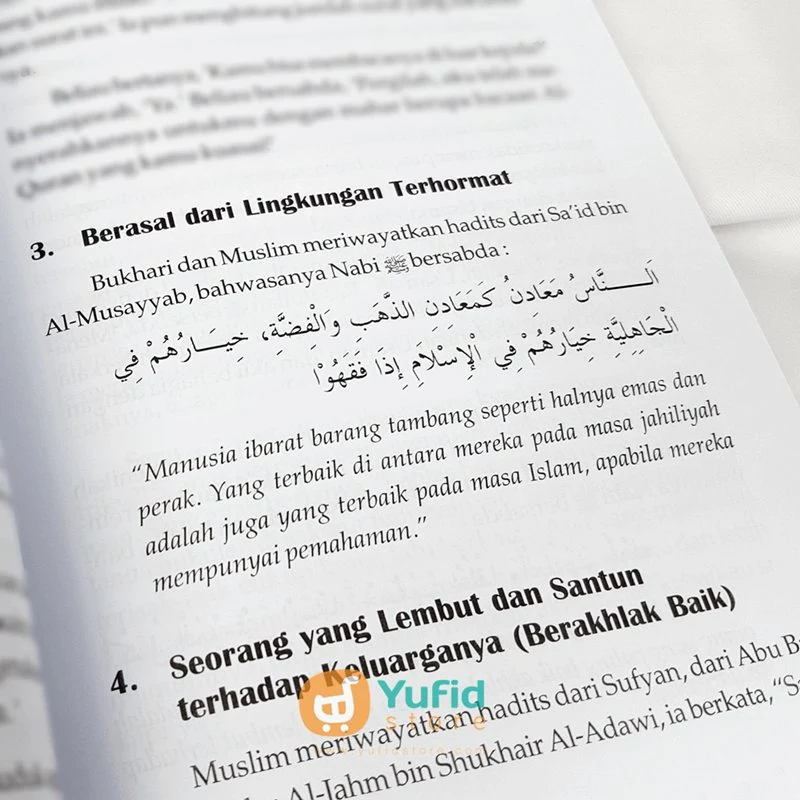 Beliau bertanya, "Kamu bisa membacanya di luar kepala?"
Ia menjawab, "Ya." Beliau bersabda, "Pergilah, aku telah me-
nyerahkannya untukmu dengan mahar berupa bacaan Al-
Quran yang kamu kuasai"
3. Berasal dari Lingkungan Terhormat
Bukhari dan Muslim meriwayatkan hadits dari Sa'id bin
Al-Musayyab, bahwasanya Nabi ﷺ bersabda :
اَلنَّاسُ مَعَادِنُ كَمَعَادِنِ الذَّهَبِ وَالْفِضَّةِ، خِيَارُهُمْ فِي
الْجَاهِلِيَّةِ خِيَارُهُمْ فِي الْإِسْلَامِ إِذَا فَقَهُوْا
"Manusia ibarat barang tambang seperti halnya emas dan
perak. Yang terbaik di antara mereka pada masa jahiliyah
adalah juga yang terbaik pada masa Islam, apabila mereka
mempunyai pemahaman."
4. Seorang yang Lembut dan Santun
terhadap Keluarganya (Berakhlak Baik)
Muslim meriwayatkan hadits dari Sufyan, dari Abu B
Al-Jahm bin Shukhair Al-Adawi, ia berkata, "S
Yufid
store
www.yufidstore.com